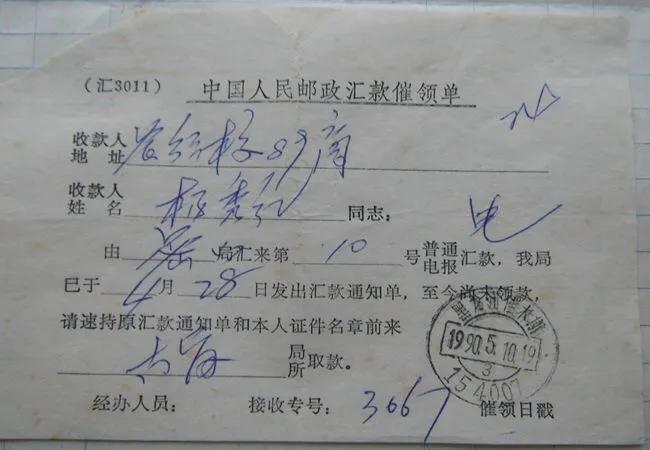 （汇3011） 中国人民邮政汇款催领单
收款人
地 址 校89商
收款人
姓 名 同志：电
由 局汇来第 10 号 普通 电报 汇款，我局
已于 4 月 28 日发出汇款通知单，至今尚未领款，
请速持原汇款通知单和本人证件名章前来
局
所 取款。
经办人员： 接收专号：3667 催领日戳
1990.5.10.19
3
154007